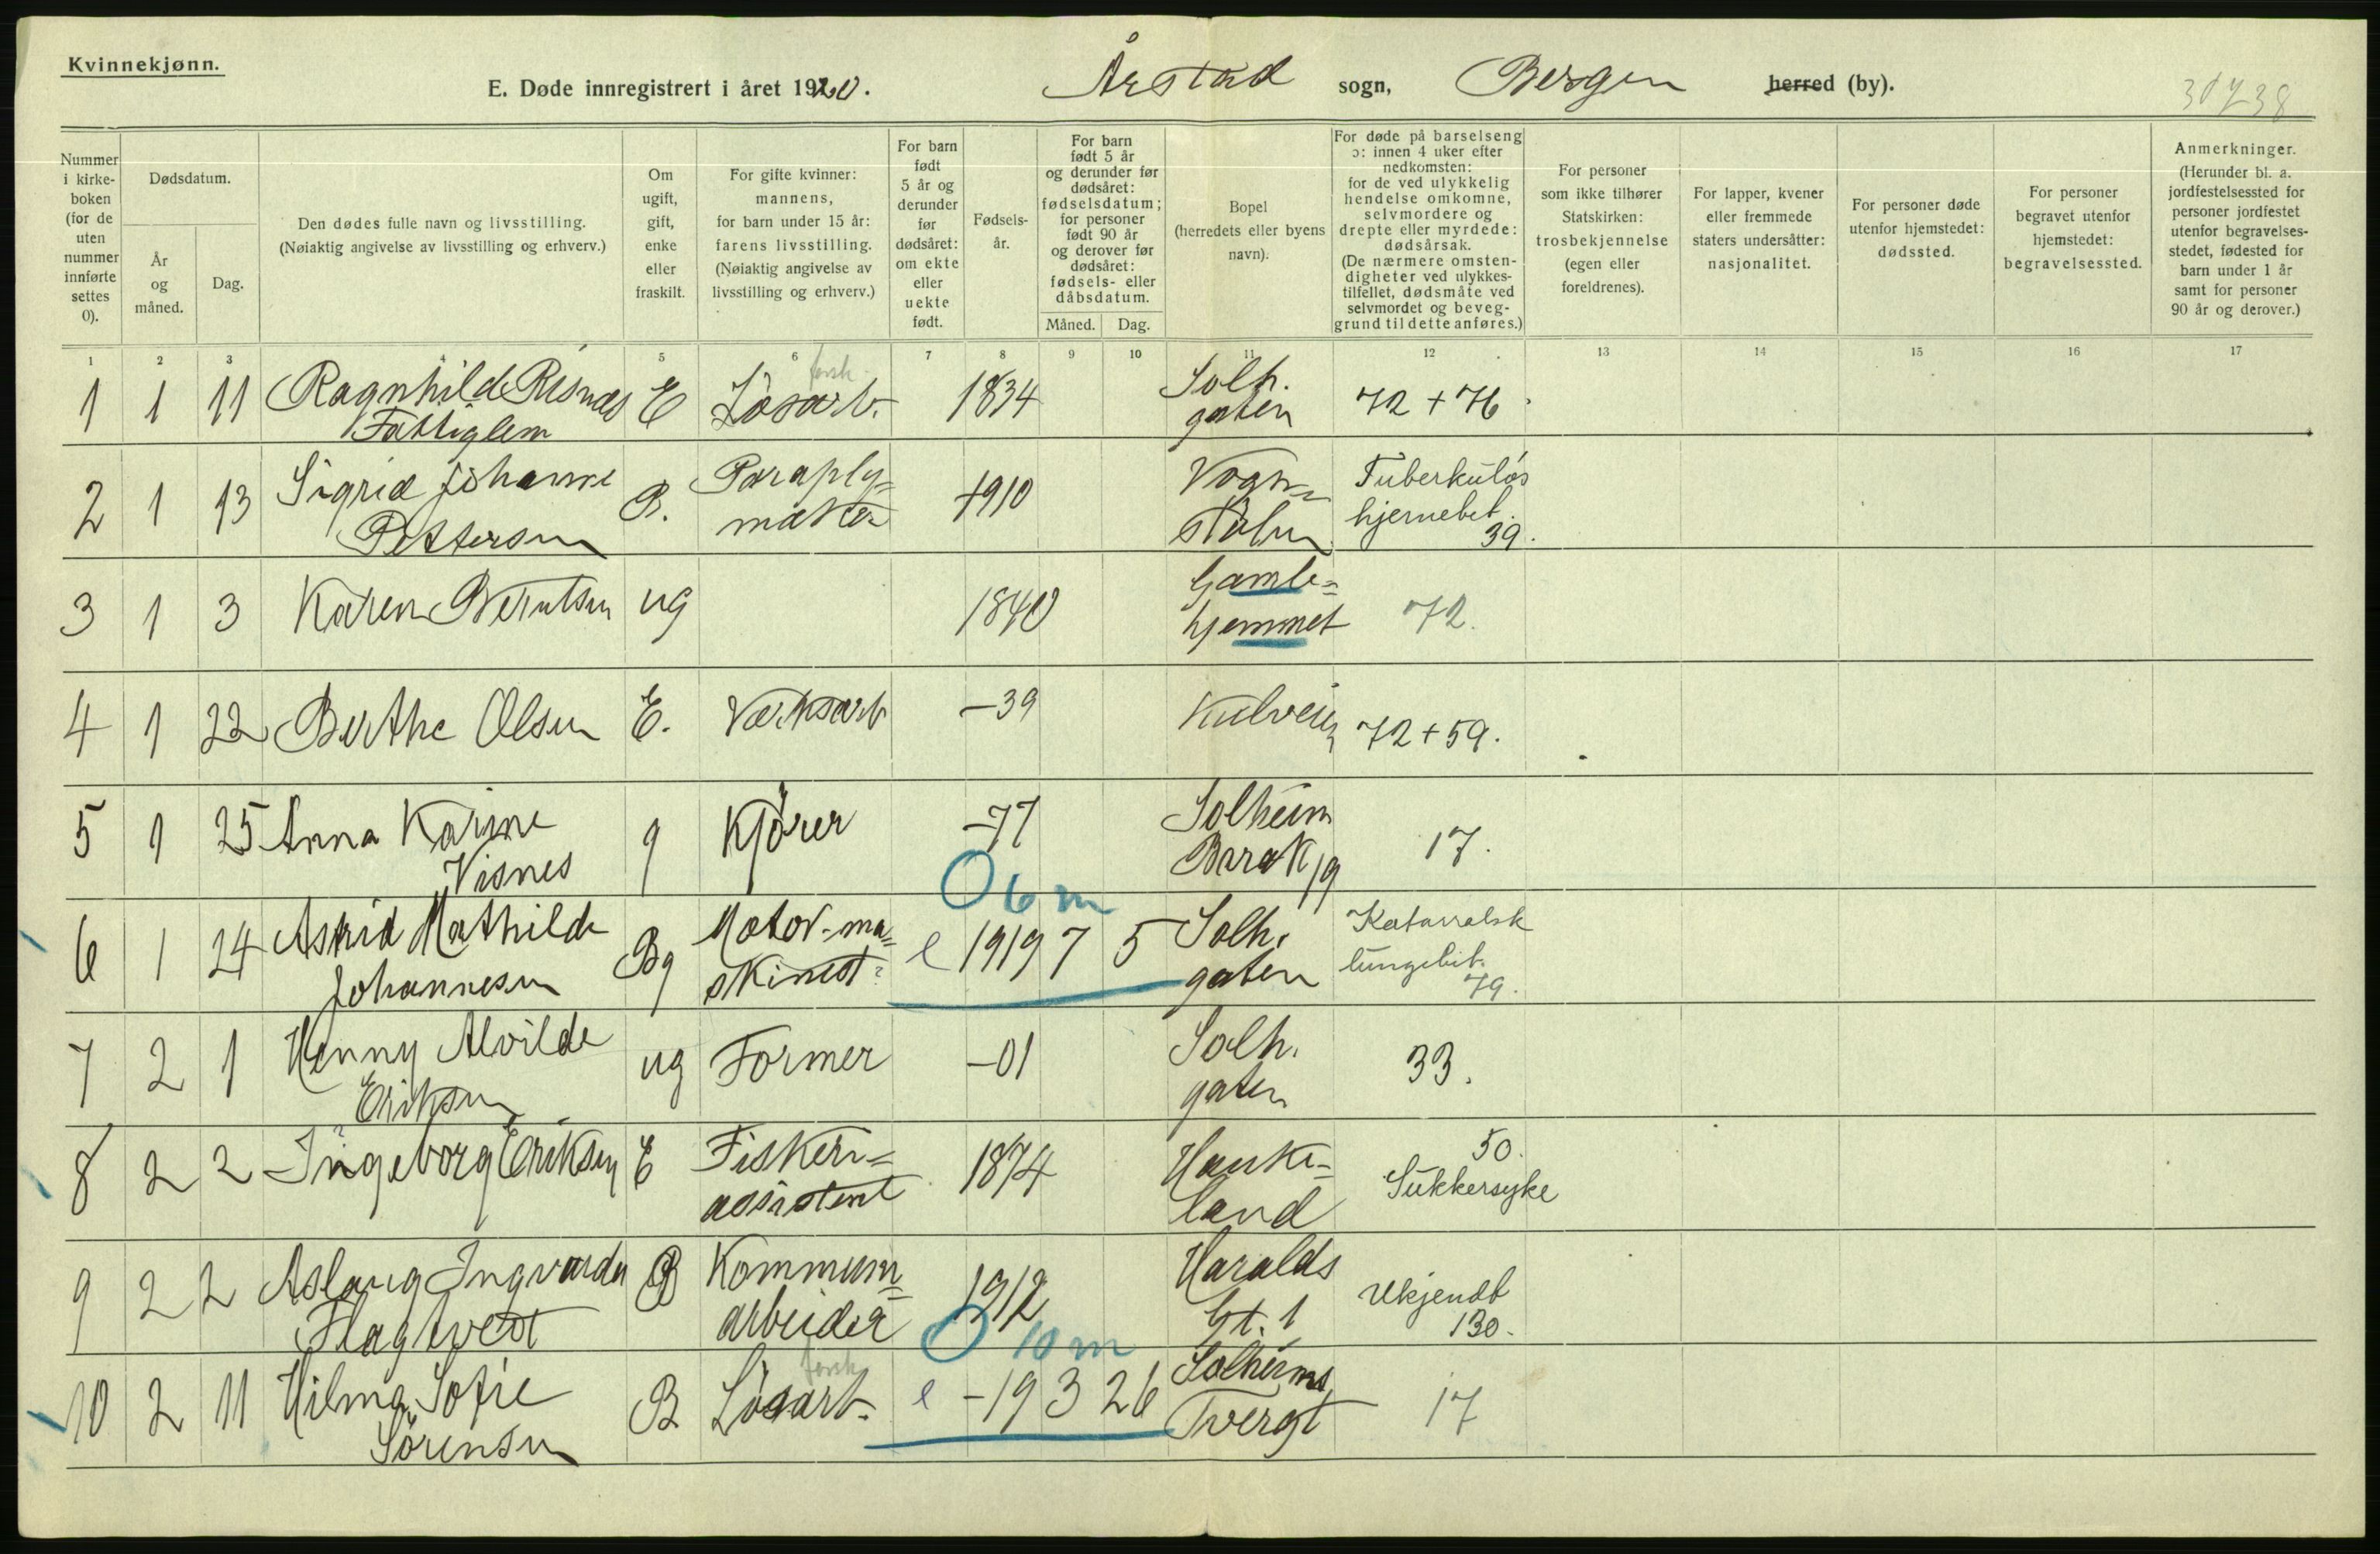 Kvinnekjønn.
E. Døde innregistrert i året 1920. Årstad sogn, Bergen herred (by). 30738
Nummer i kirke- boken (for de uten nummer innførte settes 0).
Dødsdatum.
År og måned.
Dag.
Den dødes fulle navn og livsstilling.
(Nøiaktig angivelse av livsstilling og erhverv.)
Om ugift, gift, enke eller fraskilt.
For gifte kvinner: mannens, for barn under 15 år: farens livsstilling. (Nøiaktig angivelse av livsstilling og erhverv.)
For barn født 5 år og derunder før dødsåret: om ekte eller uekte født.
Fødsels- år.
For barn født 5 år og derunder før dødsåret: fødselsdatum; for personer født 90 år og derover før dødsåret: fødsels- eller dåbsdatum.
Måned. Dag.
Bopel (herredets eller byens navn).
For døde på barselseng ɔ: innen 4 uker efter nedkomsten: for de ved ulykkelig hendelse omkomne, selvmordere og drepte eller myrdede: dødsårsak. (De nærmere omsten- digheter ved ulykkes- tilfellet, dødsmåte ved selvmordet og beveg- grund til dette anføres.)
For personer som ikke tilhører Statskirken: trosbekjennelse (egen eller foreldrenes).
For lapper, kvener eller fremmede staters undersåtter: nasjonalitet.
For personer døde utenfor hjemstedet: dødssted.
For personer begravet utenfor hjemstedet: begravelsessted.
Anmerkninger. (Herunder bl. a. jordfestelsessted for personer jordfestet utenfor begravelses- stedet, fødested for barn under 1 år samt for personer 90 år og derover.)
1 2 3 4 5 6 7 8 9 10 11 12 13 14 15 16 17
1 1 11 Ragnhild Risnæs E Løsarb. 1834 Solh. 72 + 76.
Fattiglem gaten
2 1 13 Sigrid Johanne B. Paraply= 1910 Vogn= Tuberkuløs
Pettersen maker stølen hjernebet. 39.
3 1 3 Karen Berntsen ug 1840 Gamle= 72.
hjemmet
4 1 22 Berthe Olsen E. Værksarb -39 Kulvein 72 + 59.
5 1 25 Anna Karine g Kjører -77 Solheim 17.
Visnes Barak 19
O 6 m
6 1 24 Astrid Mathilde Bg Motor-ma= e 1919 7 5 Solh. Katarralsk
Johannesen skinist gaten lungebet. 79.
7 2 1 Henny Alvilde ug Former -01 Solh. 33.
Eriksen gaten
8 2 2 Ingeborg Eriksen E Fiskeri= 1874 Hauke= 50.
assistent land Sukkersyke
9 2 2 Aslaug Ingvarda B Kommun= 1912 Haralds Ukjendt
Flagtvedt arbeider Gt. 1 130.
O 10 m
10 2 11 Hilma Sofie B Løsarb. e -19 3 26 Solheims 17
Sørensen Tvergt